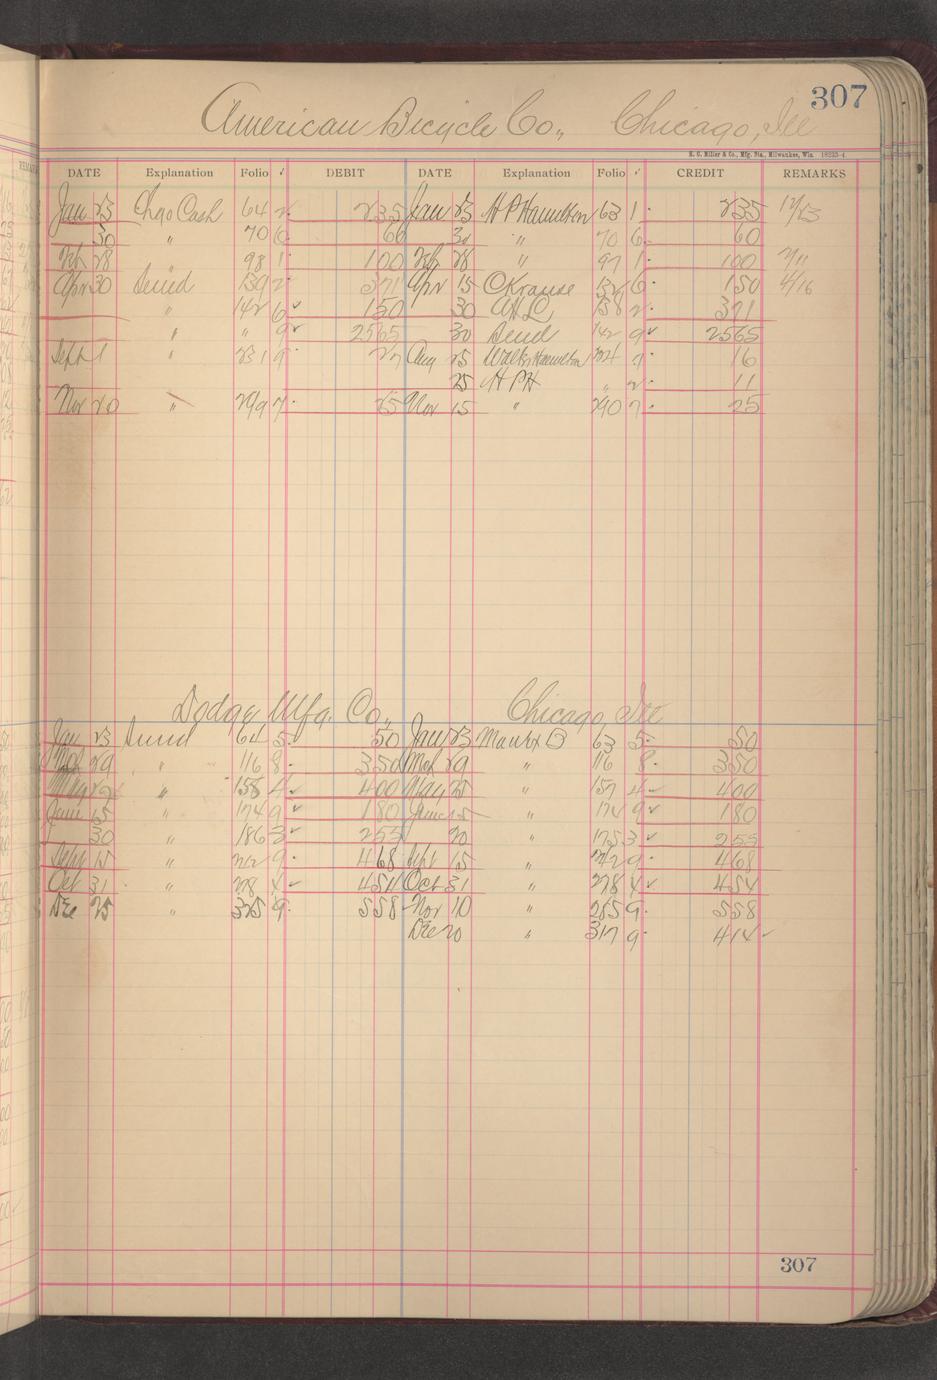 307
American Bicycle Co., Chicago, Ill
H. C. Miller & Co., Mfg. Sta., Milwaukee, Wis. 18223-4
DATE Explanation Folio √ DEBIT DATE Explanation Folio √ CREDIT REMARKS
Jan 23 Chgo Cash 64 2 235 Jan 23 H P Hamilton 63 1 235 12/23
30 " 70 6 60 30 " 70 6 60
Feb 28 " 98 1 100 Feb 28 " 97 1 100 2/11
Apr 30 Sund 139 2 371 Apr 15 C Krause 132 6 150 4/16
" 142 6 150 30 158 2 371
" " 9 2565 30 Sund 142 9 2565
Sept 1 " 231 9 27 Aug 25 Walter Hamilton 224 7 16
25 H P H " 2 11
Nov 20 " 299 7 25 Nov 15 " 290 7 25
Dodge Mfg. Co., Chicago, Ill
Jan 23 Sund 64 5 50 Jan 23 63 5 50
Mch 29 " 116 8 350 Mch 29 " 116 8 350
May 29 " 158 4 400 May 25 " 157 4 400
June 25 " 174 9 180 June 15 " 174 9 180
30 " 186 3 255 20 " 175 3 255
Sept 15 " 242 9 468 Sept 15 " 242 9 468
Oct 31 " 278 4 454 Oct 31 " 278 4 454
Dec 25 " 325 9 558 Nov 10 " 285 9 558
Dec 20 " 317 9 414
307